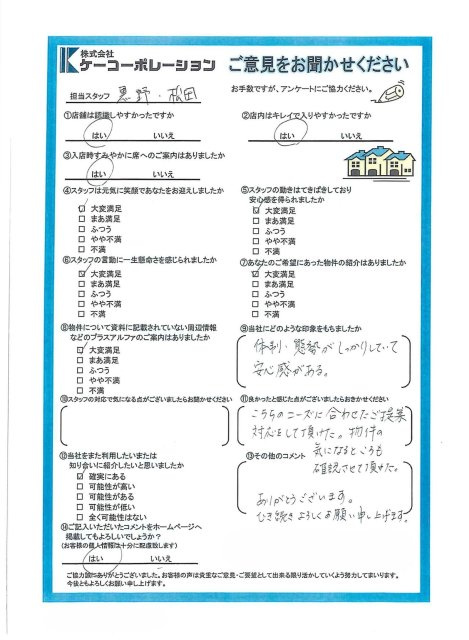 株式会社
ケーコーポレーション
ご意見をお聞かせください
担当スタッフ 恵野・松田
お手数ですが、アンケートにご協力ください。
①店舗は認識しやすかったですか
はい いいえ
②店内はキレイで入りやすかったですか
はい いいえ
③入店時すみやかに席へのご案内はありましたか
はい いいえ
④スタッフは元気に笑顔であなたをお迎えしましたか
☑ 大変満足
□ まあ満足
□ ふつう
□ やや不満
□ 不満
⑤スタッフの動きはてきぱきしており
安心感を得られましたか
☑ 大変満足
□ まあ満足
□ ふつう
□ やや不満
□ 不満
⑥スタッフの言動に一生懸命さを感じられましたか
☑ 大変満足
□ まあ満足
□ ふつう
□ やや不満
□ 不満
⑦あなたのご希望にあった物件の紹介はありましたか
☑ 大変満足
□ まあ満足
□ ふつう
□ やや不満
□ 不満
⑧物件について資料に記載されていない周辺情報
などのプラスアルファのご案内はありましたか
☑ 大変満足
□ まあ満足
□ ふつう
□ やや不満
□ 不満
⑨当社にどのような印象をもちましたか
体制・態勢がしっかりしていて
安心感がある。
⑩スタッフの対応で気になる点がございましたらお聞かせください
⑪良かったと感じた点がございましたらおきかせください
こちらのニーズに合わせたご提案
対応をして頂けた。物件の
気になるところも
確認させて頂けた。
⑫当社をまた利用したいまたは
知り合いに紹介したいと思いましたか
☑ 確実にある
□ 可能性が高い
□ 可能性がある
□ 可能性が低い
□ 全く可能性はない
⑬その他のコメント
ありがとうございます。
引き続きよろしくお願い申し上げます。
⑭ご記入いただいたコメントをホームページへ
掲載してもよろしいでしょうか？
（お客様の個人情報は十分に配慮致します）
はい いいえ
ご協力誠にありがとうございました。お客様の声は貴重なご意見・ご要望として出来る限り活かしていくよう努力してまいります。
今後ともよろしくお願い申し上げます。